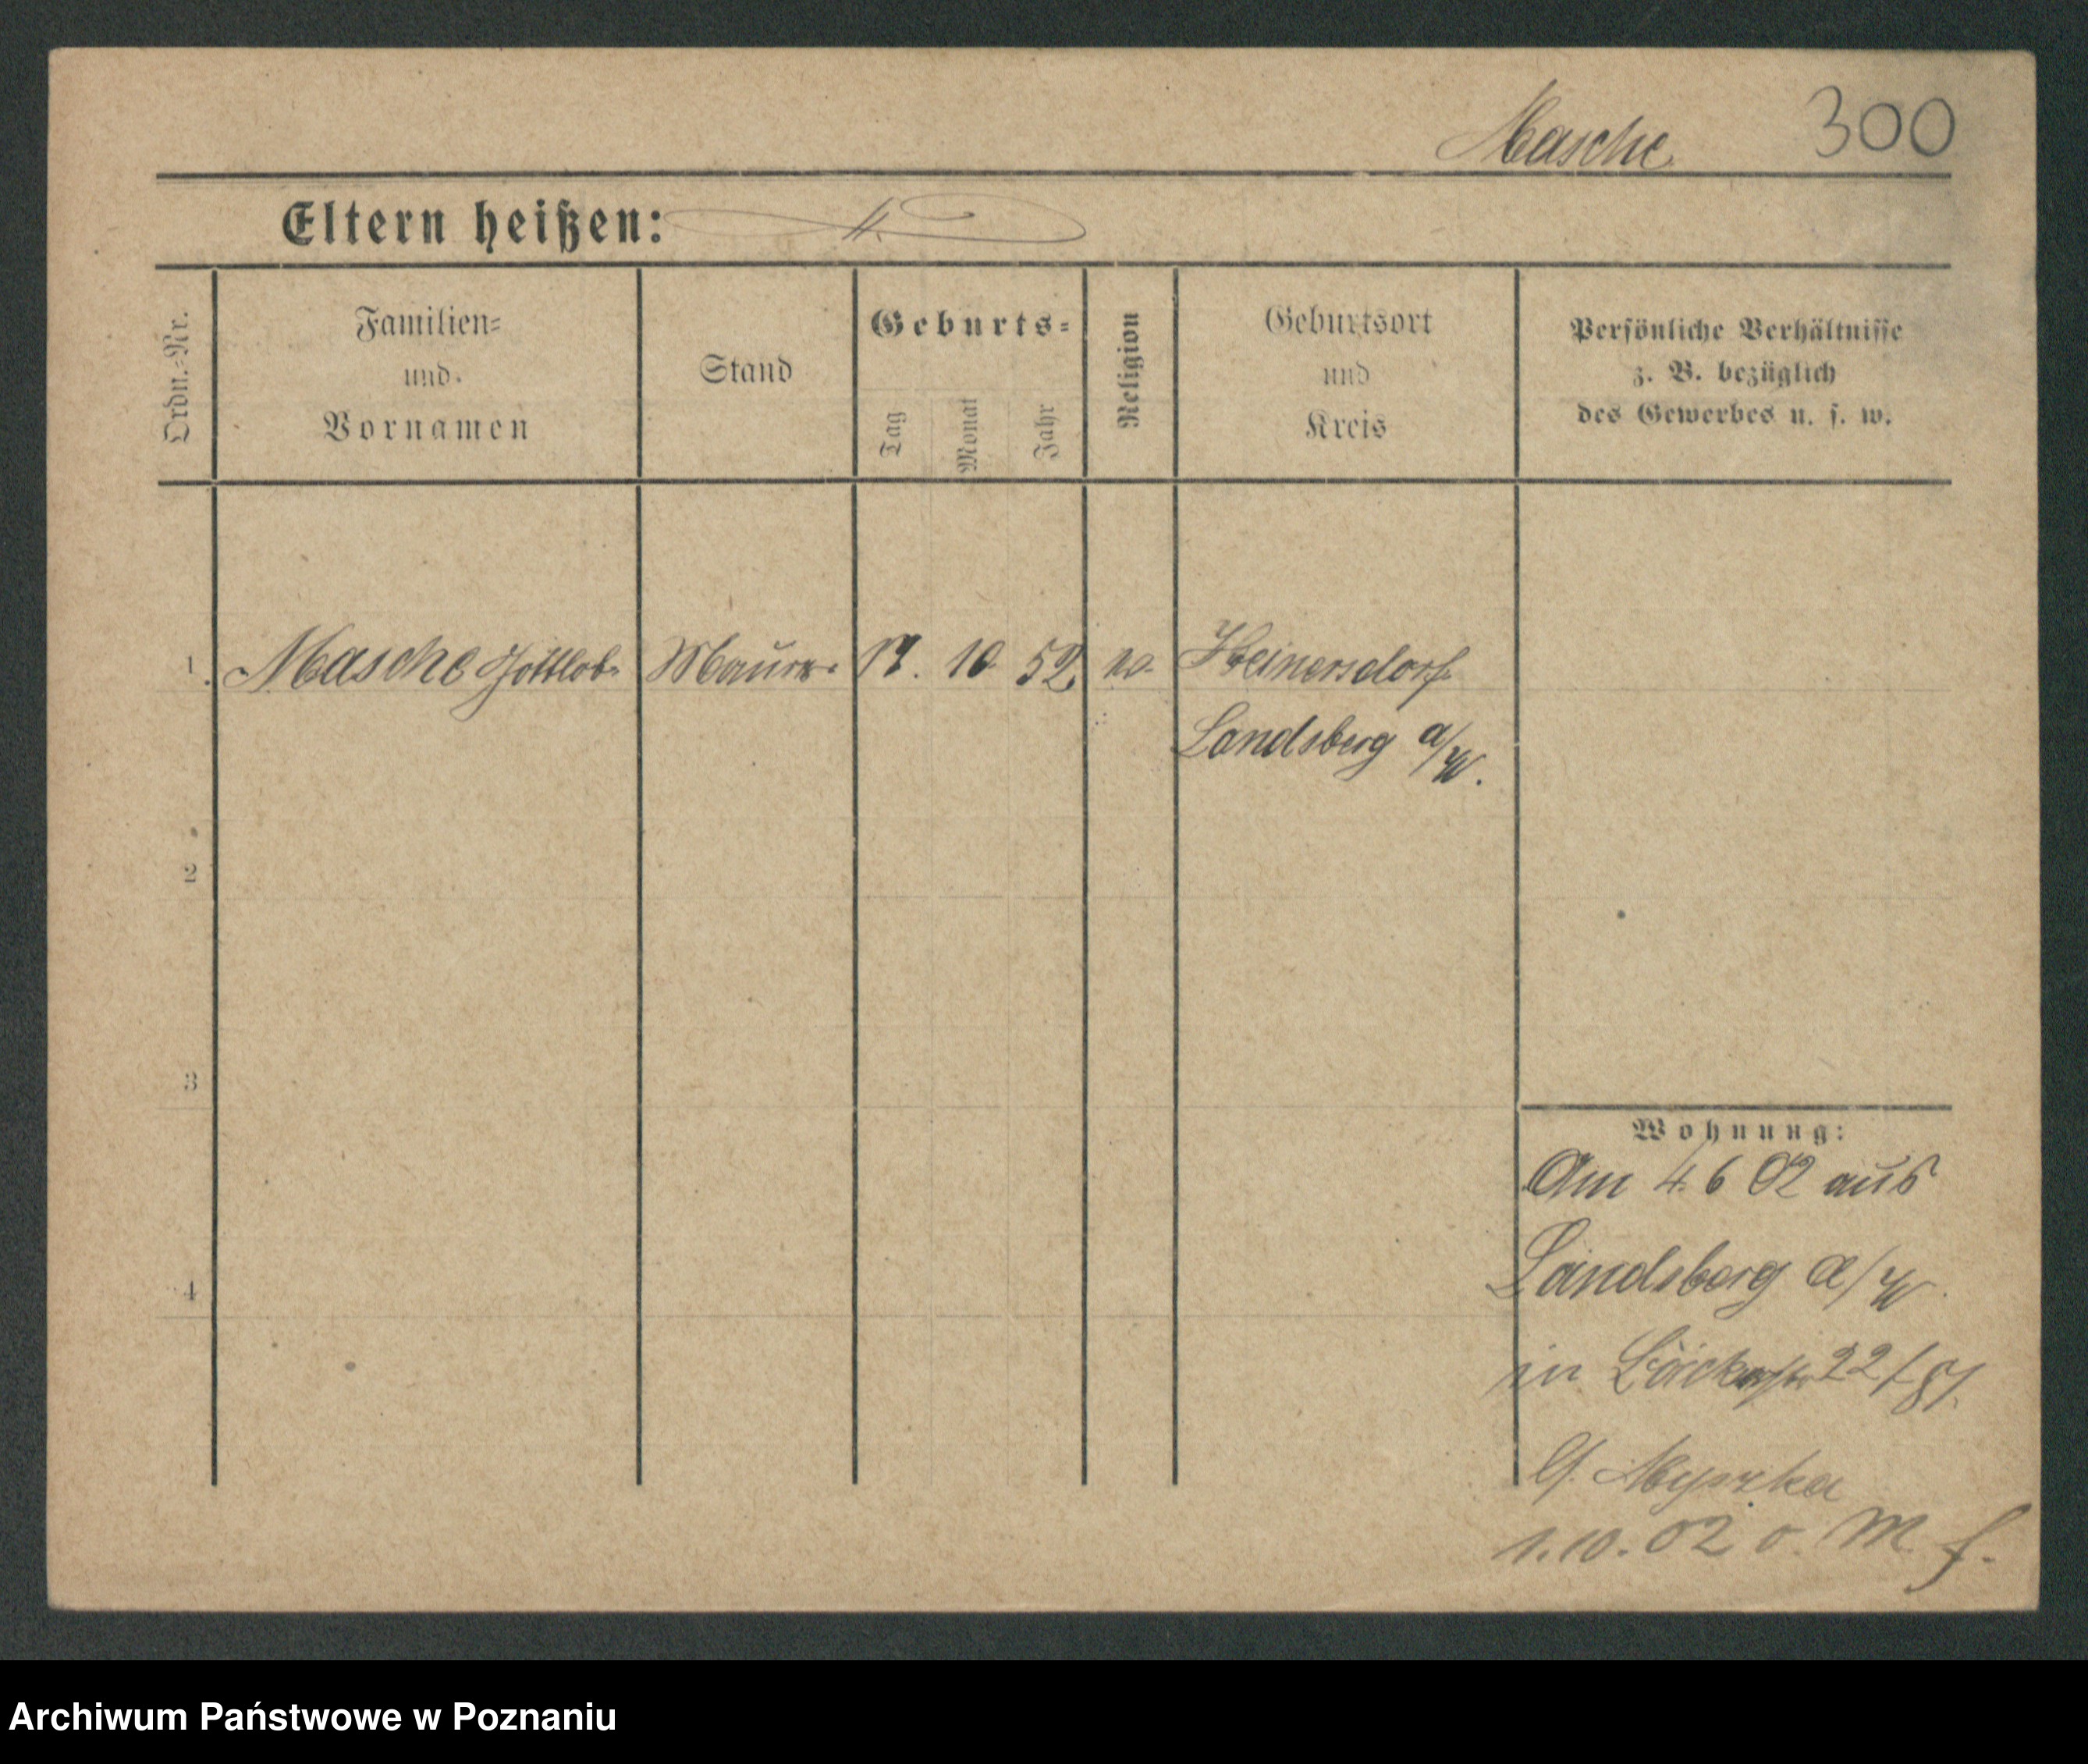 Masche 300
Eltern heißen:
Ordn.-Nr.
Familien-
und
Vornamen
Stand
Geburts-
Tag
Monat
Jahr
Religion
Geburtsort
und
Kreis
Persönliche Verhältnisse
z. B. bezüglich
des Gewerbes u. s. w.
1. Masche Gottlob Maurer 10 52 Heinersdorf
Landsberg a/W.
2
3
4
Wohnung:
Am 4 6 02 aus
Landsberg a/W.
in 22
Myszka
1.10.02 o. M
Archiwum Państwowe w Poznaniu